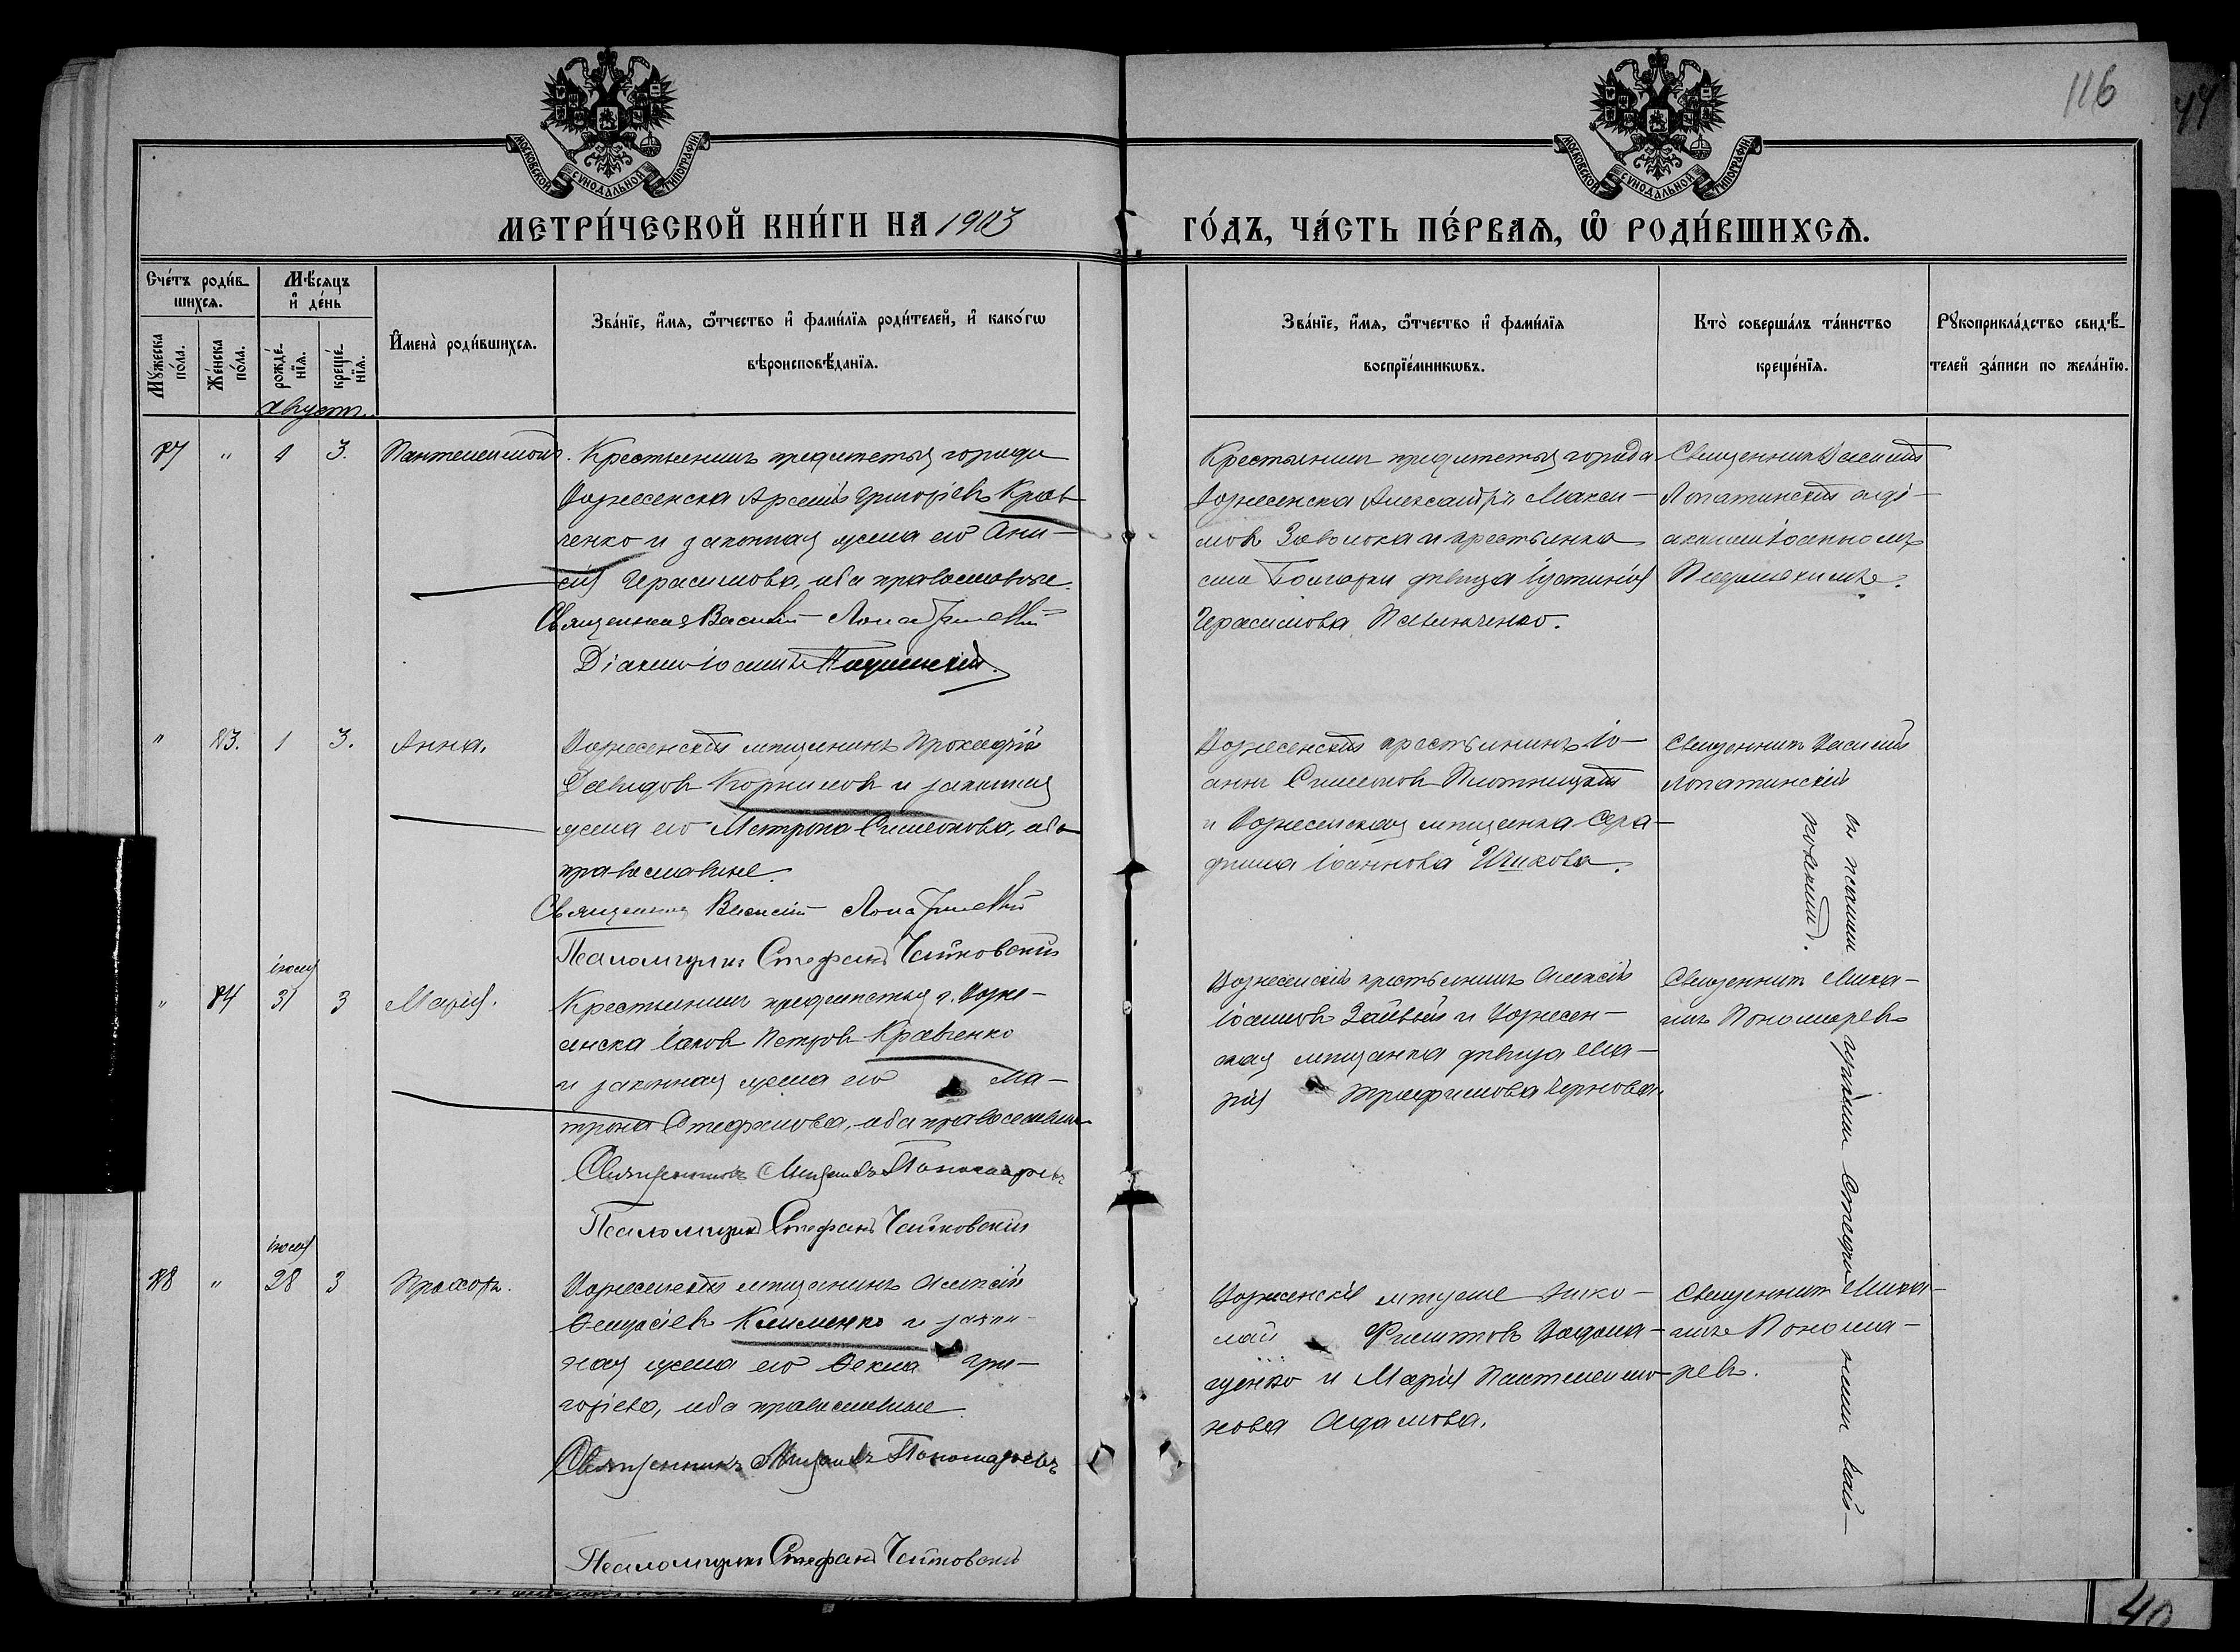 116
44
МОСКОВСКОЙ СѴНОДАЛЬНОЙ ТИПОГРАФІИ
МОСКОВСКОЙ СѴНОДАЛЬНОЙ ТИПОГРАФІИ
МЕТРИ́ЧЕСКОЙ КНИ́ГИ НА 1903 ГО́ДЪ, ЧА́СТЬ ПЕ́РВАѦ, Ѡ҆ РОДИ́ВШИХСѦ.
Сче́тъ роди́в-
шихсѧ.
Мꙋ́жеска по́ла.
Же́нска по́ла.
Мѣ́сѧцъ
и҆ де́нь
рожде́-
нїѧ.
креще́-
нїѧ.
И҆мена̀ роди́вшихсѧ.
Зва́нїе, и҆́мѧ, ѻ҆́тчество и҆ фами́лїѧ роди́телей, и҆ како́гѡ
вѣроисповѣ́данїѧ.
Зва́нїе, и҆́мѧ, ѻ҆́тчество и҆ фами́лїѧ
воспрїе́мникѡвъ.
Кто̀ соверша́лъ та́инство
креще́нїѧ.
Рꙋкоприкла́дство свидѣ́-
телей за́писи по жела́нїю.
Августъ.
87 " 1 3. Пантелеимонъ.
Крестьянинъ предместья города
Вознесенска Арсеній Григоріевъ Крав-
ченко и законная жена его Ани-
сія Герасимова, оба православные.
Священникъ Василій Лопатинскій
Діаконъ Іоаннъ
Крестьянинъ предместья города
Вознесенска Александръ Макси-
мовъ Заволока и крестьянка
села Болгарки девица Іустинія
Герасимова Павличенко.
Священникъ Василій
Лопатинскій съ ді-
акономъ Іоанномъ
" 83. 1 3. Анна.
Вознесенскій мещанинъ Прокофій
Давидовъ Корниловъ и законная
жена его Матрона Симеонова, оба
православные.
Священникъ Василій Лопатинскій
Псаломщикъ Стефанъ Чайковскій
Вознесенскій крестьянинъ Іо-
аннъ Симеоновъ Плотницкій
и Вознесенская мещанка Сера-
фима Іоаннова
Священникъ Василій
Лопатинскій
съ псалом-
щикомъ Стефа-
номъ Чай-
ковскимъ.
іюля
" 84 31 3 Марія.
Крестьянинъ предместья г. Возне-
сенска Іаковъ Петровъ Кравченко
и законная жена его Ма-
трона Стефанова, оба православные
Священникъ Михаилъ Пономаревъ
Псаломщикъ Стефанъ Чайковскій
Вознесенскій крестьянинъ Алексій
Іоанновъ и Вознесен-
ская мещанка девица Ма-
рія Трофимова Чернова.
Священникъ Миха-
илъ Пономаревъ
іюля
88 " 28 3 Прохоръ.
Вознесенскій мещанинъ Алексій
Клименко и закон-
ная жена его Ѳекла Гри-
горіева, оба православные
Священникъ Михаилъ Пономаревъ
Псаломщикъ Стефанъ Чайковскій
Вознесенскіе мещане Нико-
лай Филипповъ
и Марія Пантелеимо-
нова Адамова.
Священникъ Миха-
илъ Понома-
ревъ.
40